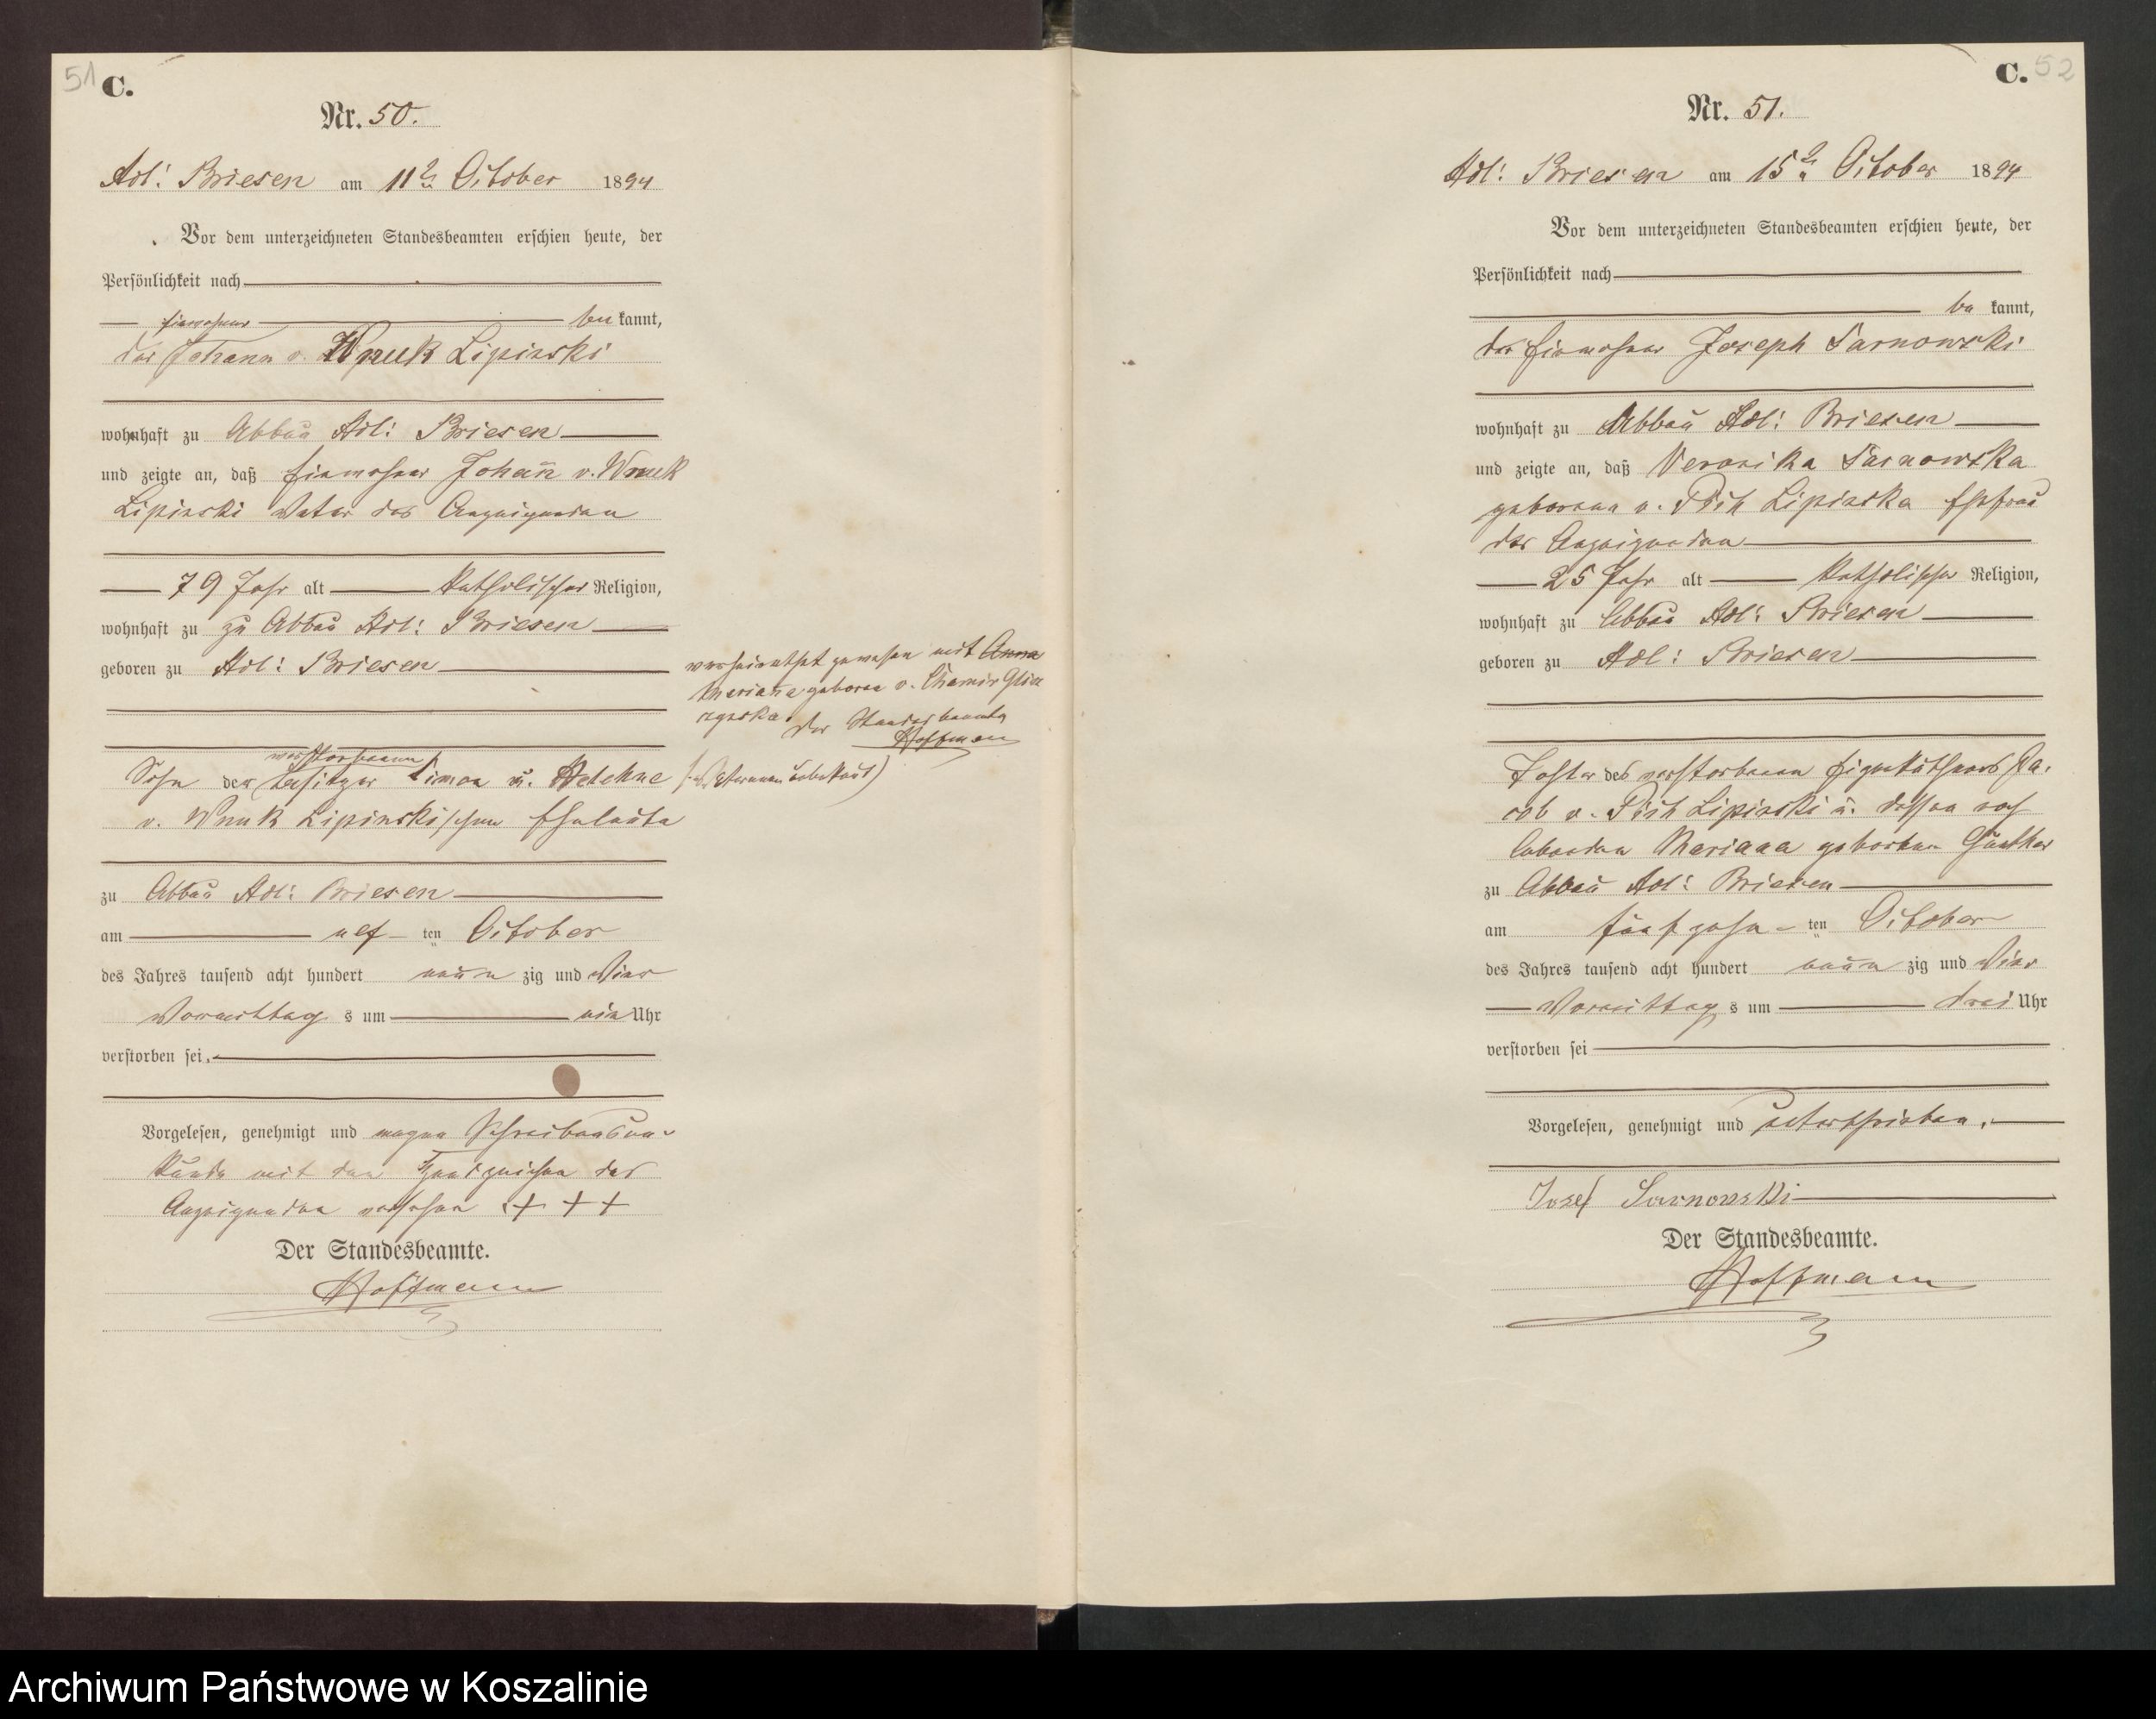 51 C.
Nr. 50.
Adl: Briesen am 11ten October 1894
Vor dem unterzeichneten Standesbeamten erschien heute, der
Persönlichkeit nach
Einwohner be kannt,
der Johann v. Wnuk Lipinski
wohnhaft zu Abbau Adl: Briesen
und zeigte an, daß Einwohner Johann v. Wnuk
Lipinski Vater des Anzeigenden
79 Jahr alt katholischer Religion,
wohnhaft zu zu Abbau Adl: Briesen
geboren zu Adl: Briesen
verheirathet gewesen mit Anna
Marianna geborene v.
Der Standesbeamte
Hoffmann
verstorbenen
Sohn der Besitzer Simon u. Helehne
v. Wnuk Lipinski'schen Eheleute
zu Abbau Adl: Briesen
am elf ten October
des Jahres tausend acht hundert neun zig und Vier
Vormittag s um ein Uhr
verstorben sei.
Vorgelesen, genehmigt und wegen Schreibensun-
kunde mit den Handzeichen des
Anzeigenden versehen +++
Der Standesbeamte.
Hoffmann
C. 52
Nr. 51.
Adl: Briesen am 15ten October 1894
Vor dem unterzeichneten Standesbeamten erschien heute, der
Persönlichkeit nach
be kannt,
der Einwohner Joseph Sarnowski
wohnhaft zu Abbau Adl: Briesen
und zeigte an, daß Veronika Sarnowska
geborene v. Lipinska Ehefrau
des Anzeigenden
25 Jahr alt katholischer Religion,
wohnhaft zu Abbau Adl: Briesen
geboren zu Adl: Briesen
Tochter des verstorbenen Eigenkäthners Ja-
cob v. Lipinski u. dessen noch
lebenden Marianna geborene Günther
zu Abbau Adl: Briesen
am fünfzehn- ten October
des Jahres tausend acht hundert neun zig und Vier
Vormittag s um drei Uhr
verstorben sei
Vorgelesen, genehmigt und unterschrieben.
Josef Sarnowski
Der Standesbeamte.
Hoffmann
Archiwum Państwowe w Koszalinie